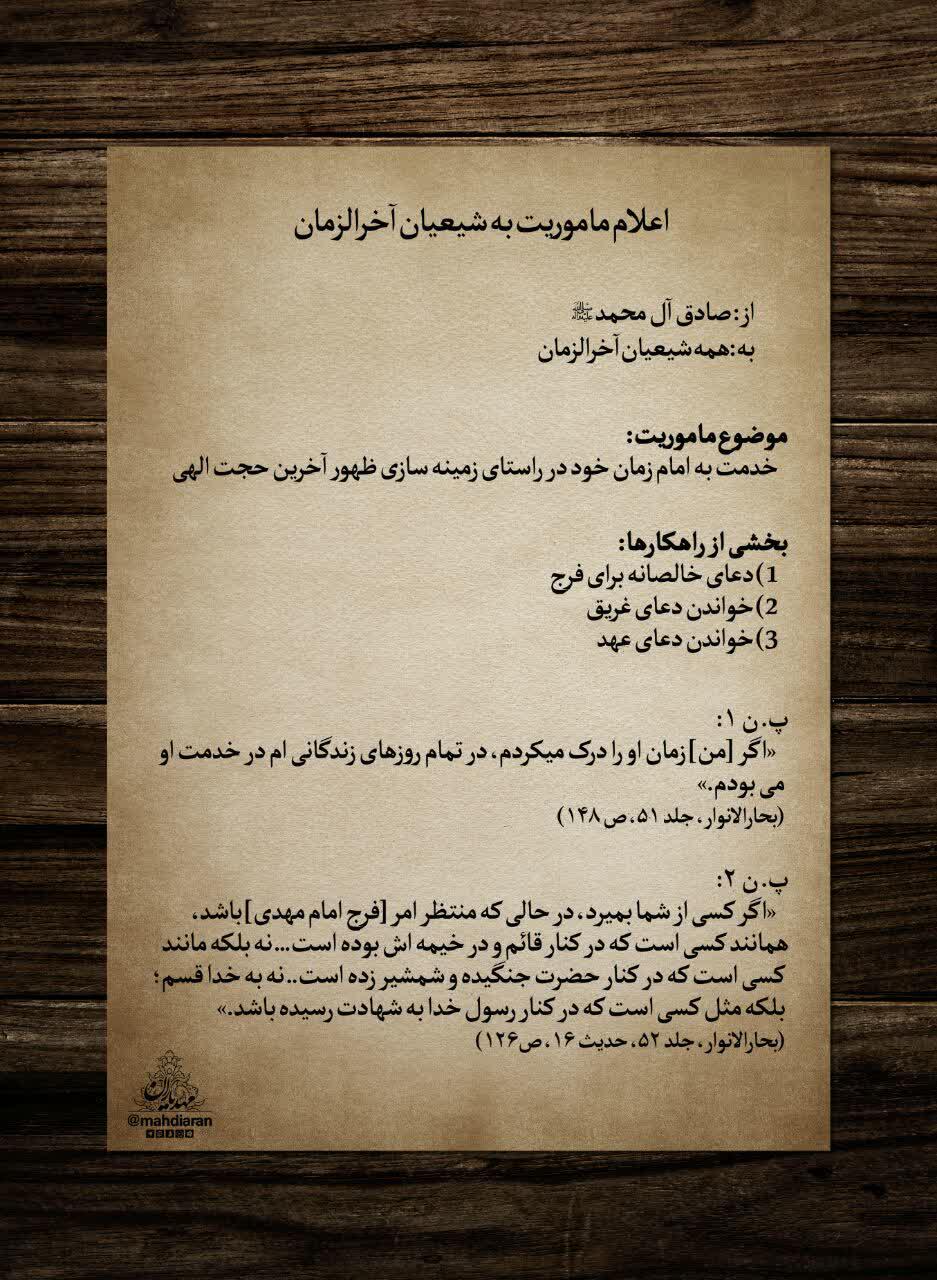 اعلام ماموریت به شیعیان آخرالزمان
از:صادق آل محمدﷺ
به:همه شیعیان آخرالزمان
موضوع ماموریت:
خدمت به امام زمان خود در راستای زمینه سازی ظهور آخرین حجت الهی
بخشی از راهکارها:
1)دعای خالصانه برای فرج
2)خواندن دعای غریق
3)خواندن دعای عهد
پ.ن ۱:
«اگر [من]زمان او را درک میکردم، در تمام روزهای زندگانی ام در خدمت او
می بودم.»
(بحارالانوار، جلد ۵۱، ص۱۴۸)
پ.ن ۲:
«اگر کسی از شما بمیرد، در حالی که منتظر امر [فرج امام مهدی]باشد،
همانند کسی است که در کنار قائم و در خیمه اش بوده است...نه بلکه مانند
کسی است که در کنار حضرت جنگیده و شمشیر زده است..نه به خدا قسم؛
بلکه مثل کسی است که در کنار رسول خدا به شهادت رسیده باشد.»
(بحارالانوار، جلد ۵۲، حدیث ۱۶، ص۱۲۶)
مهدیاران
@mahdiaran